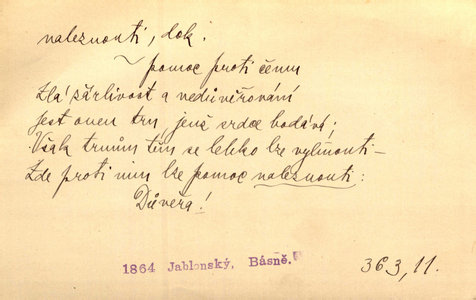 naleznouti, dok.
~ pomoc proti čemu
Zlá žárlivost a nedůvěřování
jest onen trn jenž srdce bodává;
Však trnům těm se lehko lze vyhnouti –
Zde proti nim lze pomoc naleznouti:
Důvěra!
1864 Jablonský, Básně.
363, 11.